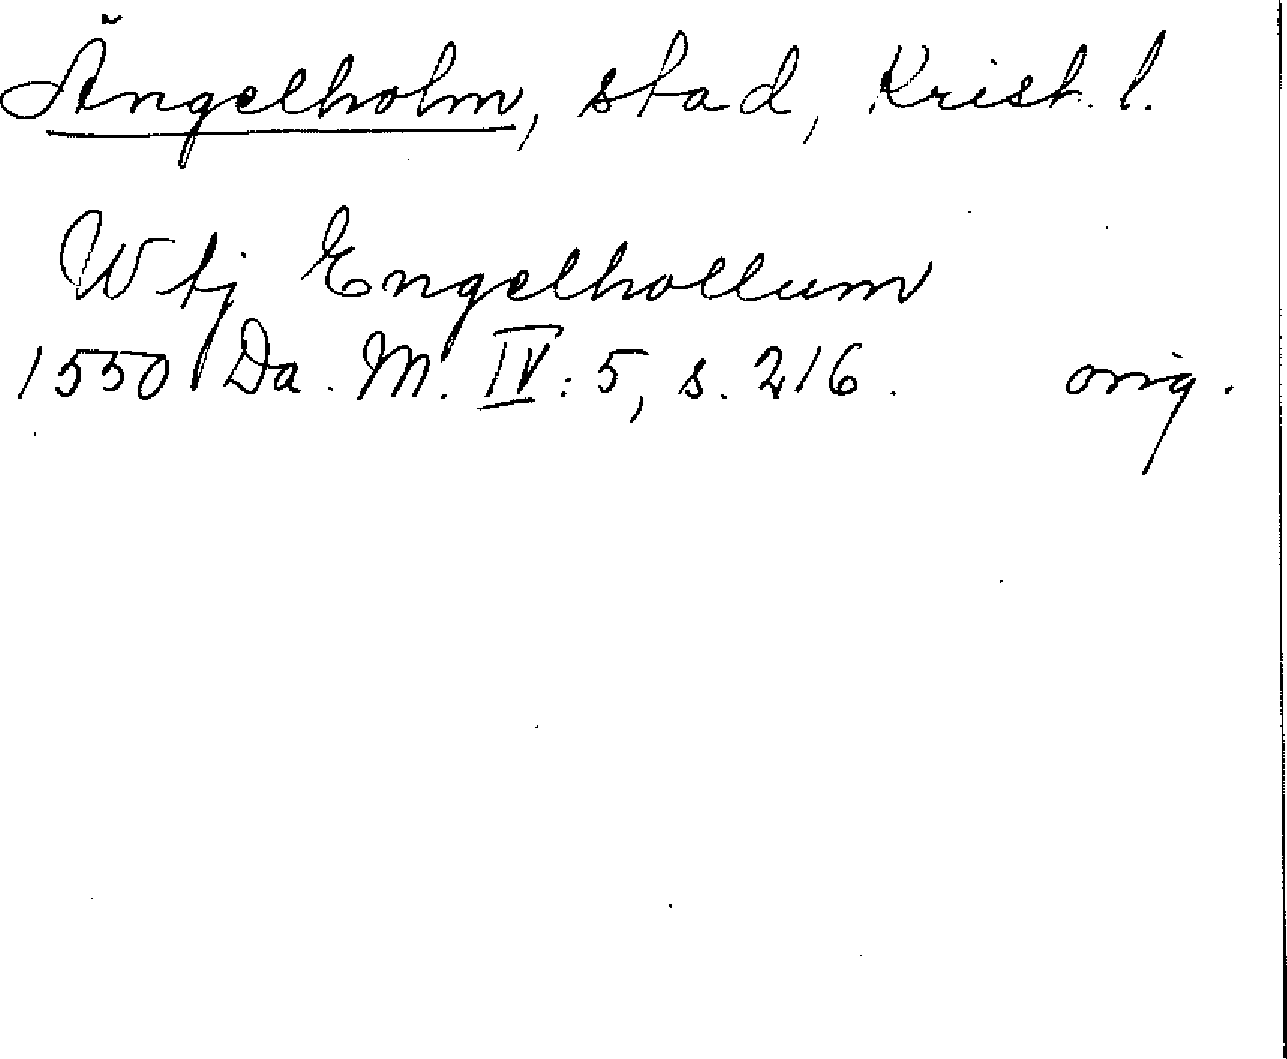 Ängelholm, stad, Krist. l.
Wtj Engelhollum
1550 Da. M. IV: 5, s. 216. orig.